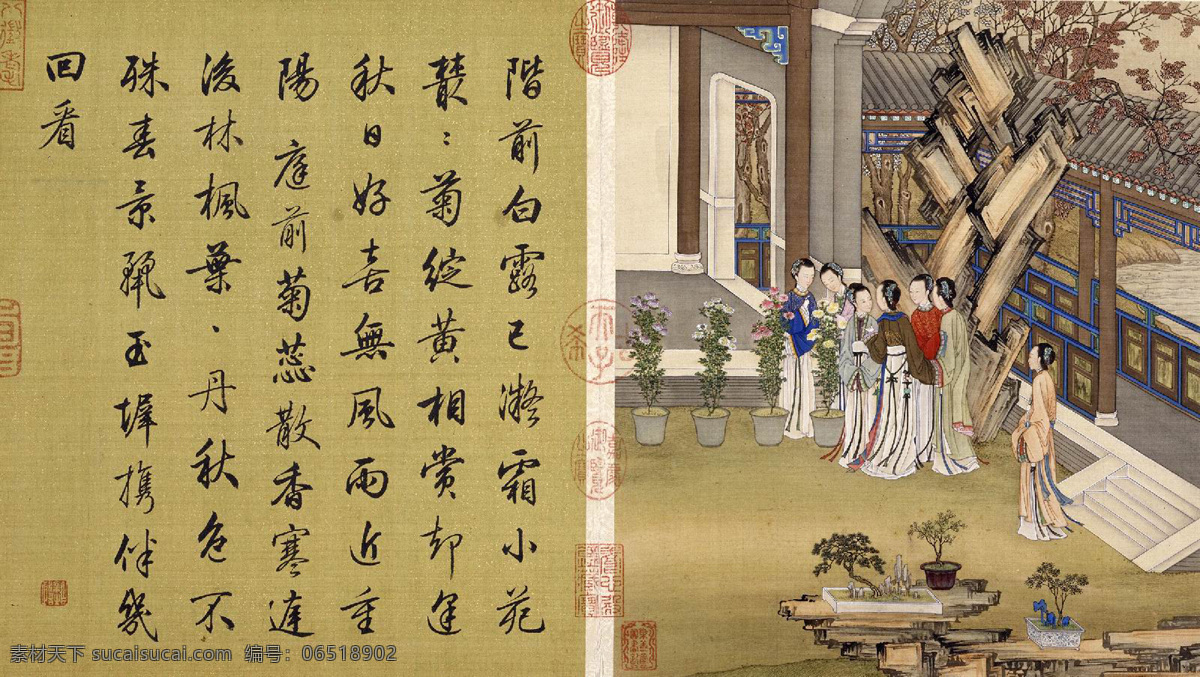 階前白露已凝霜小苑
叢〻菊綻黃相賞却逢
秋日好喜無風雨近重
陽　庭前菊蕊散香寒遠
後林楓葉〻丹秋色不
殊春景麗玉墀攜伴幾
回看
素材天下 sucaisucai.com 编号：06518902